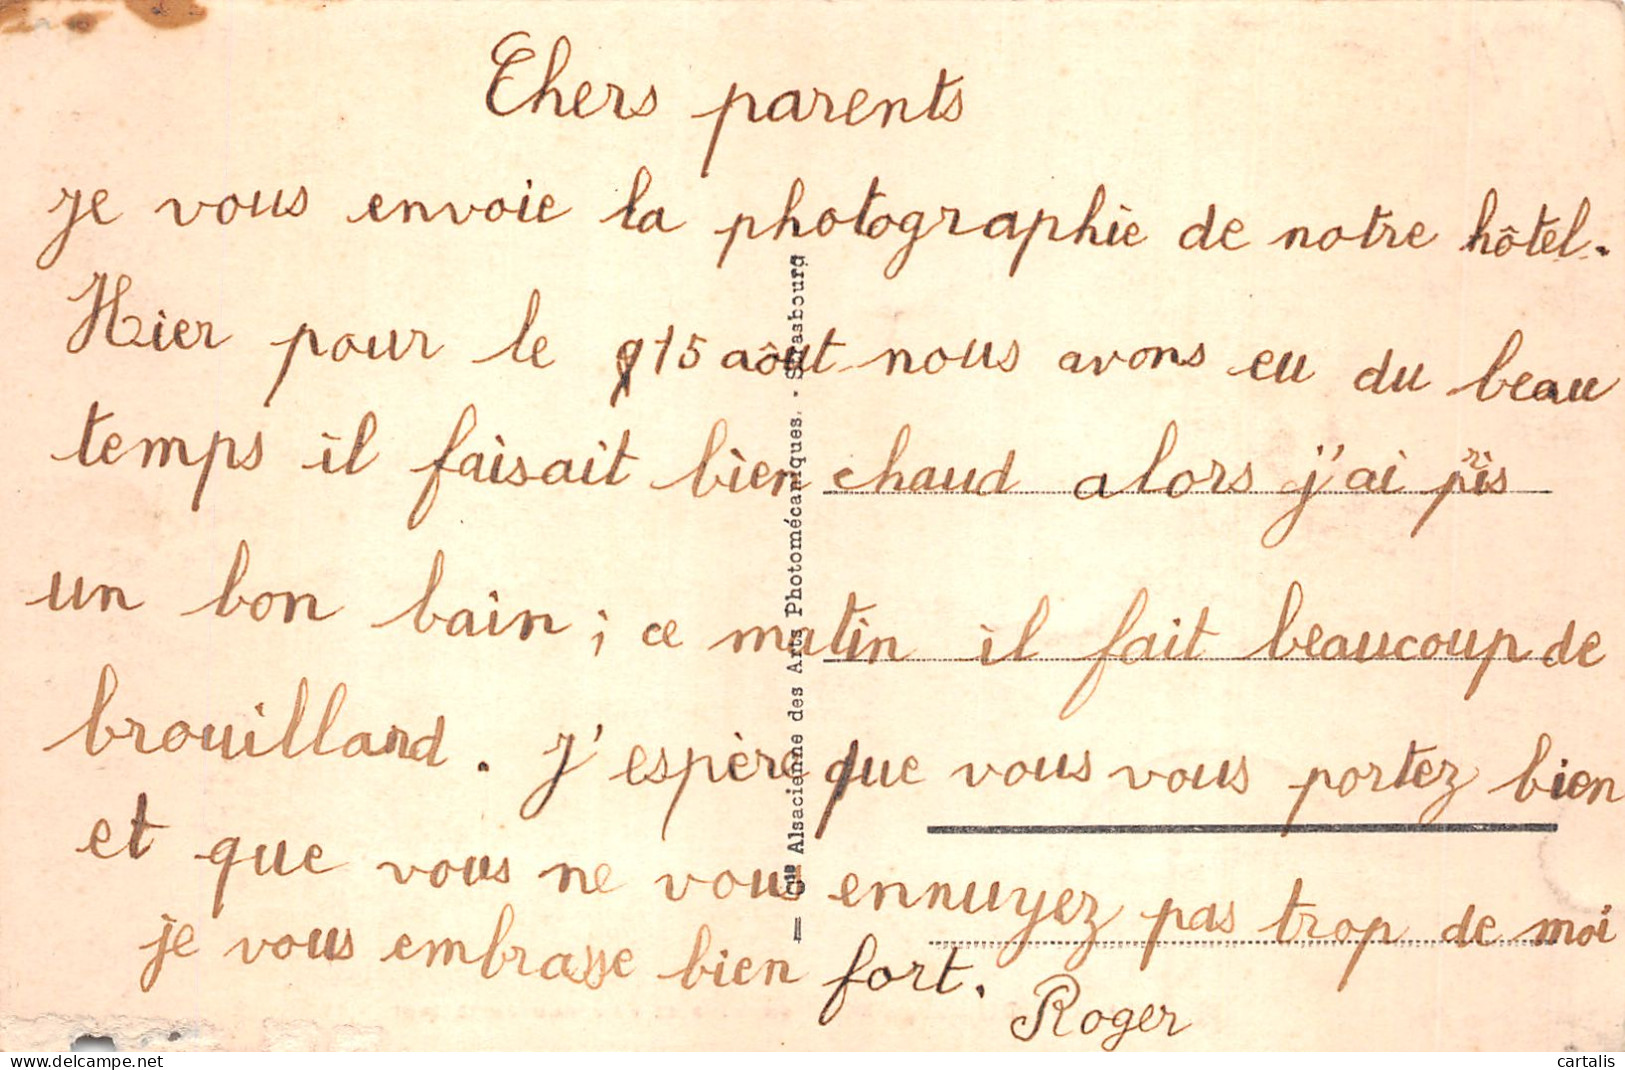 Chers parents
je vous envoie la photographie de notre hôtel.
Hier pour le 15 août nous avons eu du beau
temps il faisait bien chaud alors j'ai pris
un bon bain ; ce matin il fait beaucoup de
brouillard. J'espère que vous vous portez bien
et que vous ne vous ennuyez pas trop de moi
je vous embrasse bien fort.
Roger
— Cie Alsacienne des Arts Photomécaniques. - Strasbourg
cartalis